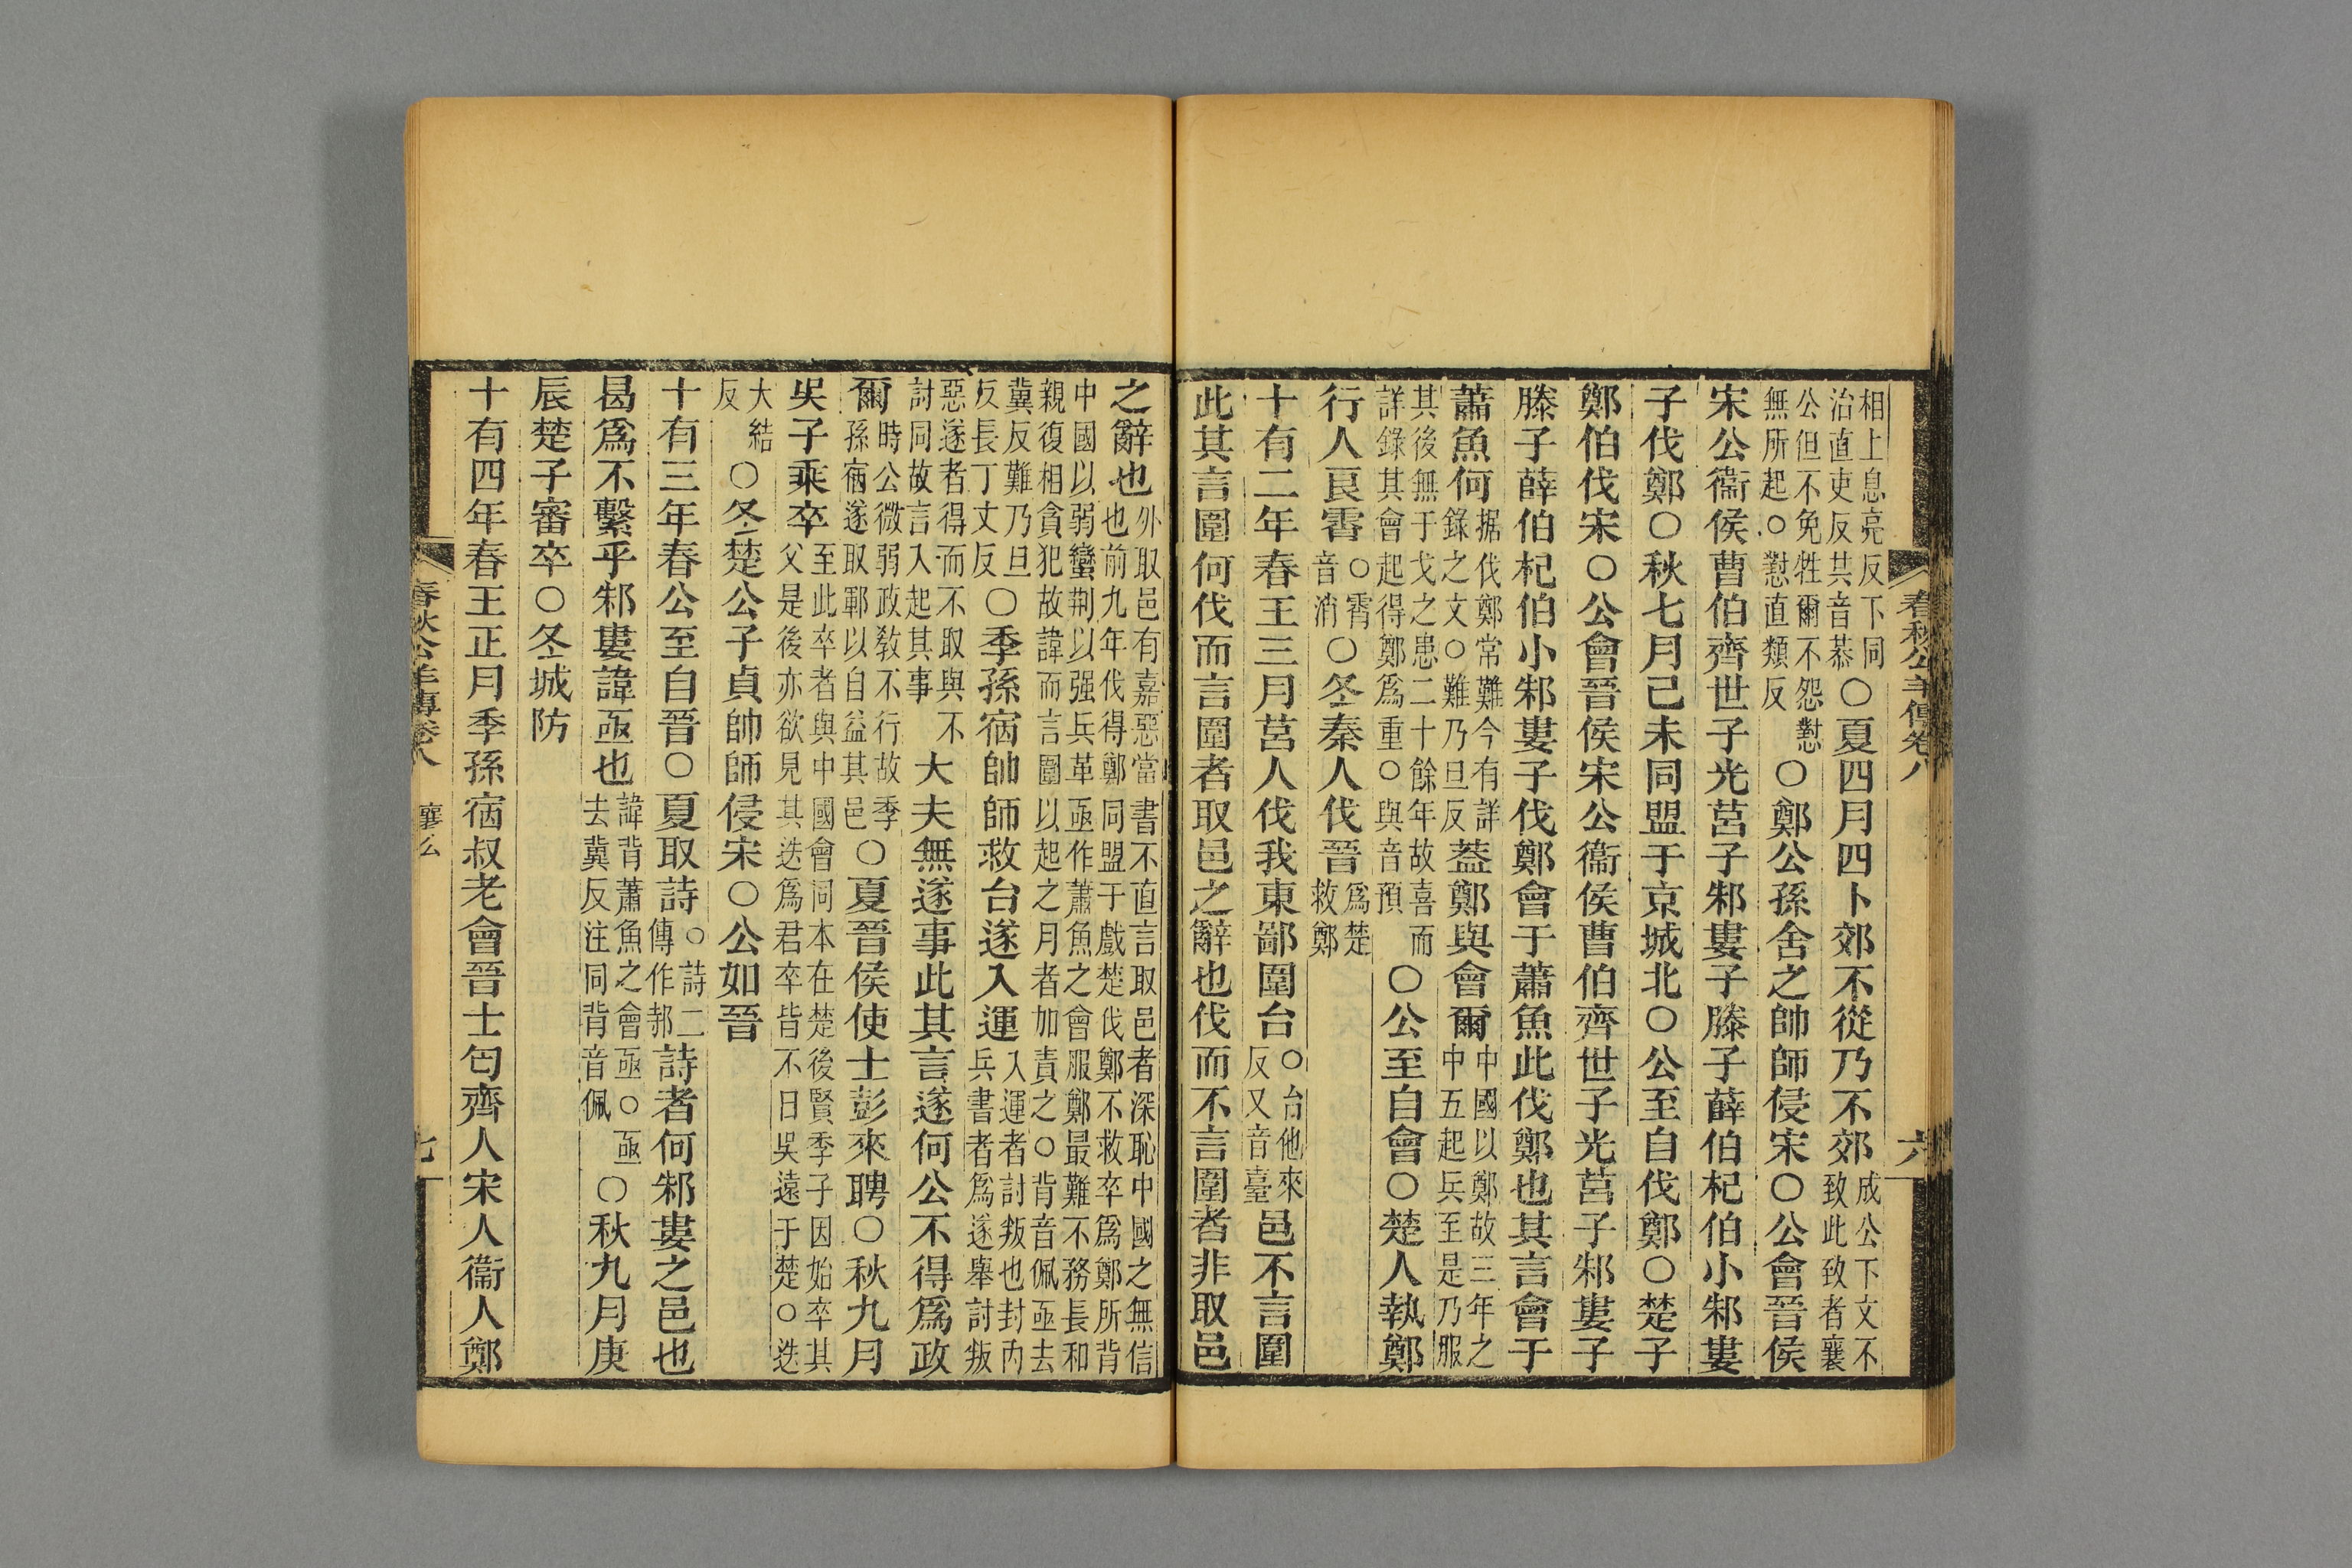 春秋公羊傳卷八 六
相上息亮反下同治直吏反共音恭○夏四月四卜郊不從乃不郊成公下文不致此致者襄
公但不免牲爾不怨懟無所起○懟直類反○鄭公孫舍之帥師侵宋○公會晉侯
宋公衞侯曹伯齊世子光莒子邾婁子滕子薛伯杞伯小邾婁
子伐鄭○秋七月己未同盟于京城北○公至自伐鄭○楚子
鄭伯伐宋○公會晉侯宋公衞侯曹伯齊世子光莒子邾婁子
滕子薛伯杞伯小邾婁子伐鄭會于蕭魚此伐鄭也其言會于
蕭魚何据伐鄭常難今有詳錄之文○難乃旦反蓋鄭與會爾中國以鄭故三年之中五起兵至是乃服
其後無干戈之患二十餘年故喜而詳錄其會起得鄭爲重○與音預○公至自會○楚人執鄭
行人良霄○霄音消○冬秦人伐晉爲楚救鄭
十有二年春王三月莒人伐我東鄙圍台○台他來反又音臺邑不言圍
此其言圍何伐而言圍者取邑之辭也伐而不言圍者非取邑
之辭也外取邑有嘉惡當書不直言取邑者深恥中國之無信也前九年伐得鄭同盟于戲楚伐鄭不救卒爲鄭所背
中國以弱蠻荆以强兵革亟作蕭魚之會服鄭最難不務長和親復相貪犯故諱而言圍以起之月者加責之○背音佩亟去
冀反難乃旦反長丁丈反○季孫宿帥師救台遂入運入運者討叛也封內兵書者爲遂舉討叛
惡遂者得而不取與不討同故言入起其事大夫無遂事此其言遂何公不得爲政
爾時公微弱政教不行故季孫宿遂取鄆以自益其邑○夏晉侯使士彭來聘○秋九月
吳子乘卒至此卒者與中國會同本在楚後賢季子因始卒其父是後亦欲見其迭爲君卒皆不日吳遠于楚○迭
大結反○冬楚公子貞帥師侵宋○公如晉
十有三年春公至自晉○夏取詩○詩二傳作邿詩者何邾婁之邑也
曷爲不繫乎邾婁諱亟也諱背蕭魚之會亟○亟去冀反注同背音佩○秋九月庚
辰楚子審卒○冬城防
十有四年春王正月季孫宿叔老會晉士匄齊人宋人衞人鄭
春秋公羊傳卷八 襄公 七